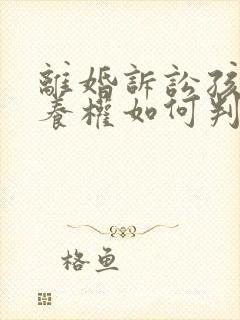 離婚訴訟孩
養權如何判
格鱼